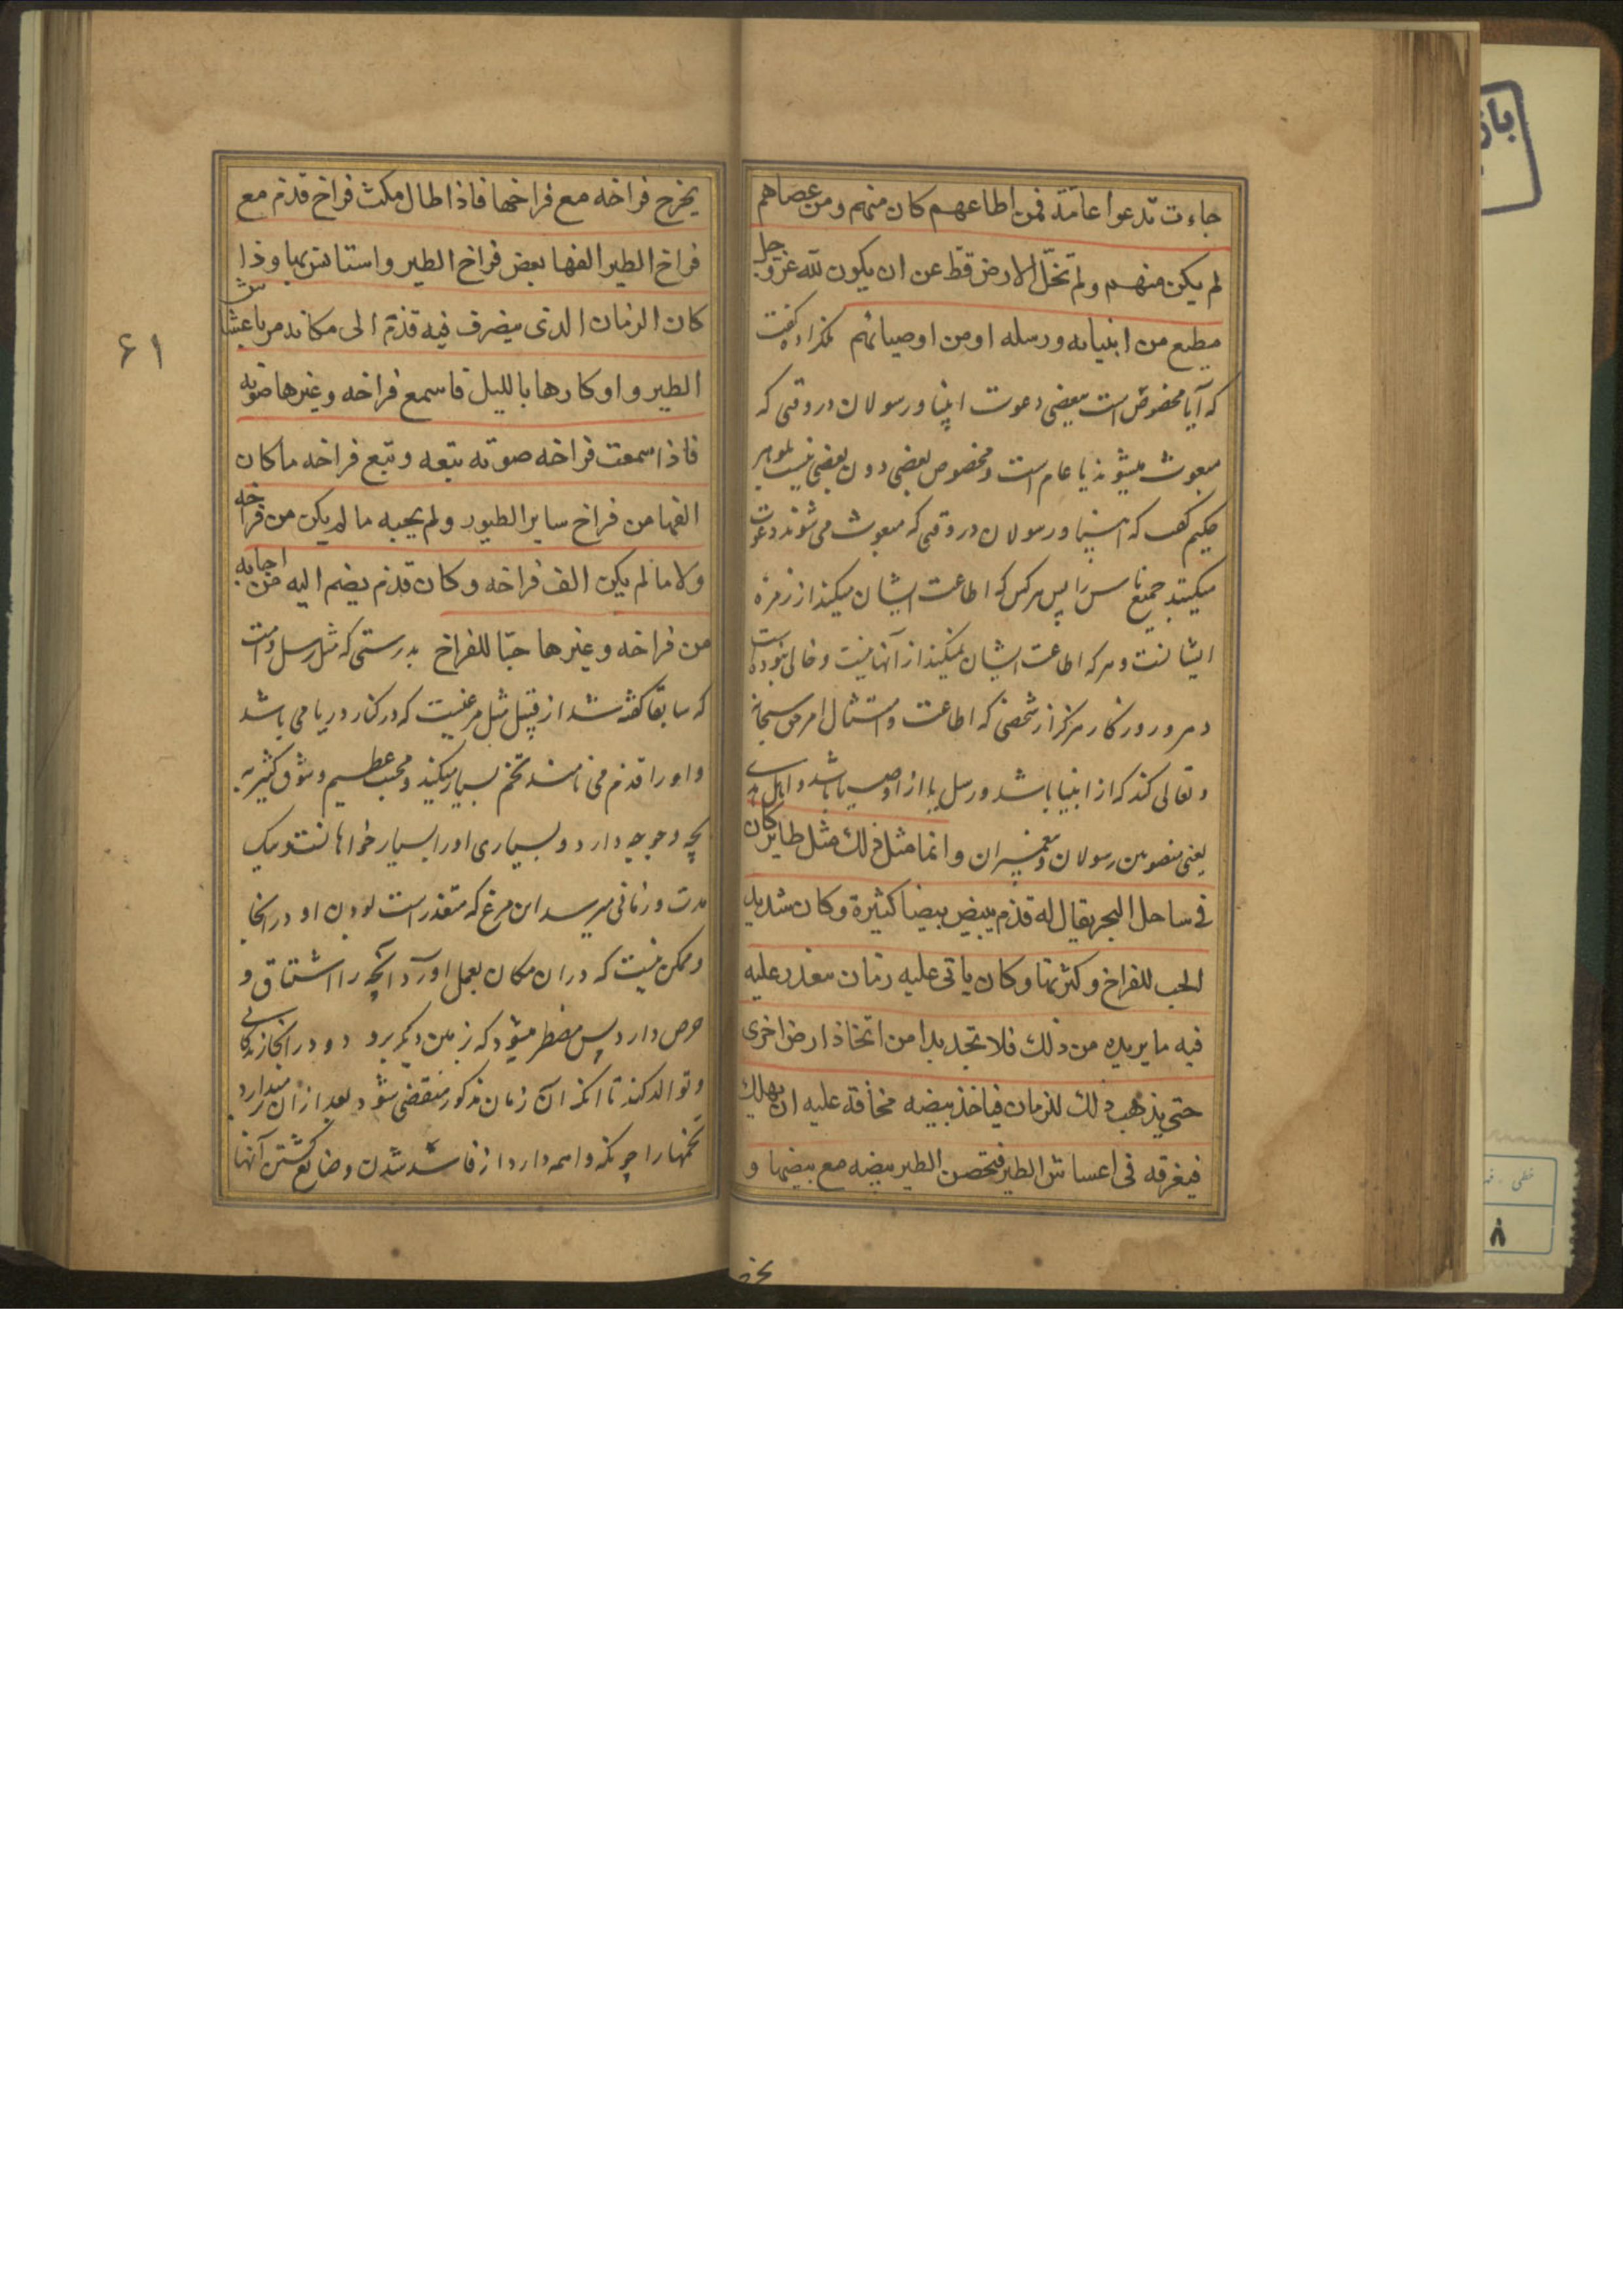 جاءت تدعوا عامّة فمن اطاعهم كان منهم ومن عصاهم
لم يكن منهم ولم تخلّ الارض قط عن ان يكون لله عزوجل
مطيع من انبيائه ورسله اومن اوصيائهم ملکزاده کفت
که آیا مخصوص است ببعضی دعوت انبیا و رسولان در وقتی که
مبعوث میشوند یا عام است و مخصوص بعضی دون بعضی نیست بلوهر
حکیم کفت که انبیا و رسولان در وقتی که مبعوث می شوند دعوت
میکنند جمیع ناس را پس هر کس که اطاعت ایشان میکند از زمره
ایشانست و هر که اطاعت ایشان نمیکند از آنها نیست و خالی نبوده است
دهر و روزکار هرکز از شخصی که اطاعت و امتثال امر حق سبحانه
و تعالی کند که از انبیا باشد و رسل یا از اوصیا باشد و
یعنی منصوبین رسولان و پیغمبران وانما مثل ذلك مثل طاير كان
فى ساحل البحر يقال له قدم يبيض بيضا كثيرة وكان شديد
الحب للفراخ وكثرتها وكان ياتى عليه زمان معذر عليه
فيه ما يريده من ذلك فلا تجد بدا من اتخاذ ارض اخرى
حتى يذهب ذلك الزمان فياخذ بيضه مخافة عليه ان يهلك
فيفرقه فى اعساش الطير فتحصن الطير بيضه مع بيضها و
تخر
يخرج فراخه مع فراخها فاذا طال مكث فراخ قدم مع
فراخ الطير الفها بعض فراخ الطير واستانس بها وذا
كان الزمان الذى ينصرف فيه قدم الى مكانه مر باعشاش
الطير و اوكارها بالليل فاسمع فراخه وغيرها صوته
فاذا سمعت فراخه صوته تبعه وتبع فراخه ما كان
الفها من فراخ ساير الطيور ولم يجبه ما لم يكن من فراخه
ولا ما لم يكن الف فراخه وكان قدم يضم اليه من اجابه
من فراخه وغيرها حبّا للفراخ بدرستی که مثل رسل و امت
که سابقا کفته شد از قبیل مثل مرغیست که در کنار دریا می باشد
و او را قدم می نامند تخم بسیار میکند و محبت عظیم و شوق کثیر به
بچه و جوجه دارد و بسیاری او را بسیار خواهانست و یک
مدت و زمانی میرسد این مرغ که متعذر است بودن او در انجا
و ممکن نیست که در ان مکان بعمل اورد آنچه را اشتیاق و
حرص دارد پس مضطر میشود که زمین دیکر برود و در انجا زندکانی
و توالد کند تا انکه آن زمان مذکور منقضی شود بعد از ان میدارد
تخمها را چونکه واهمه دارد از فاسد شدن و ضایع کشتن آنها
۶۱
خطی
۸